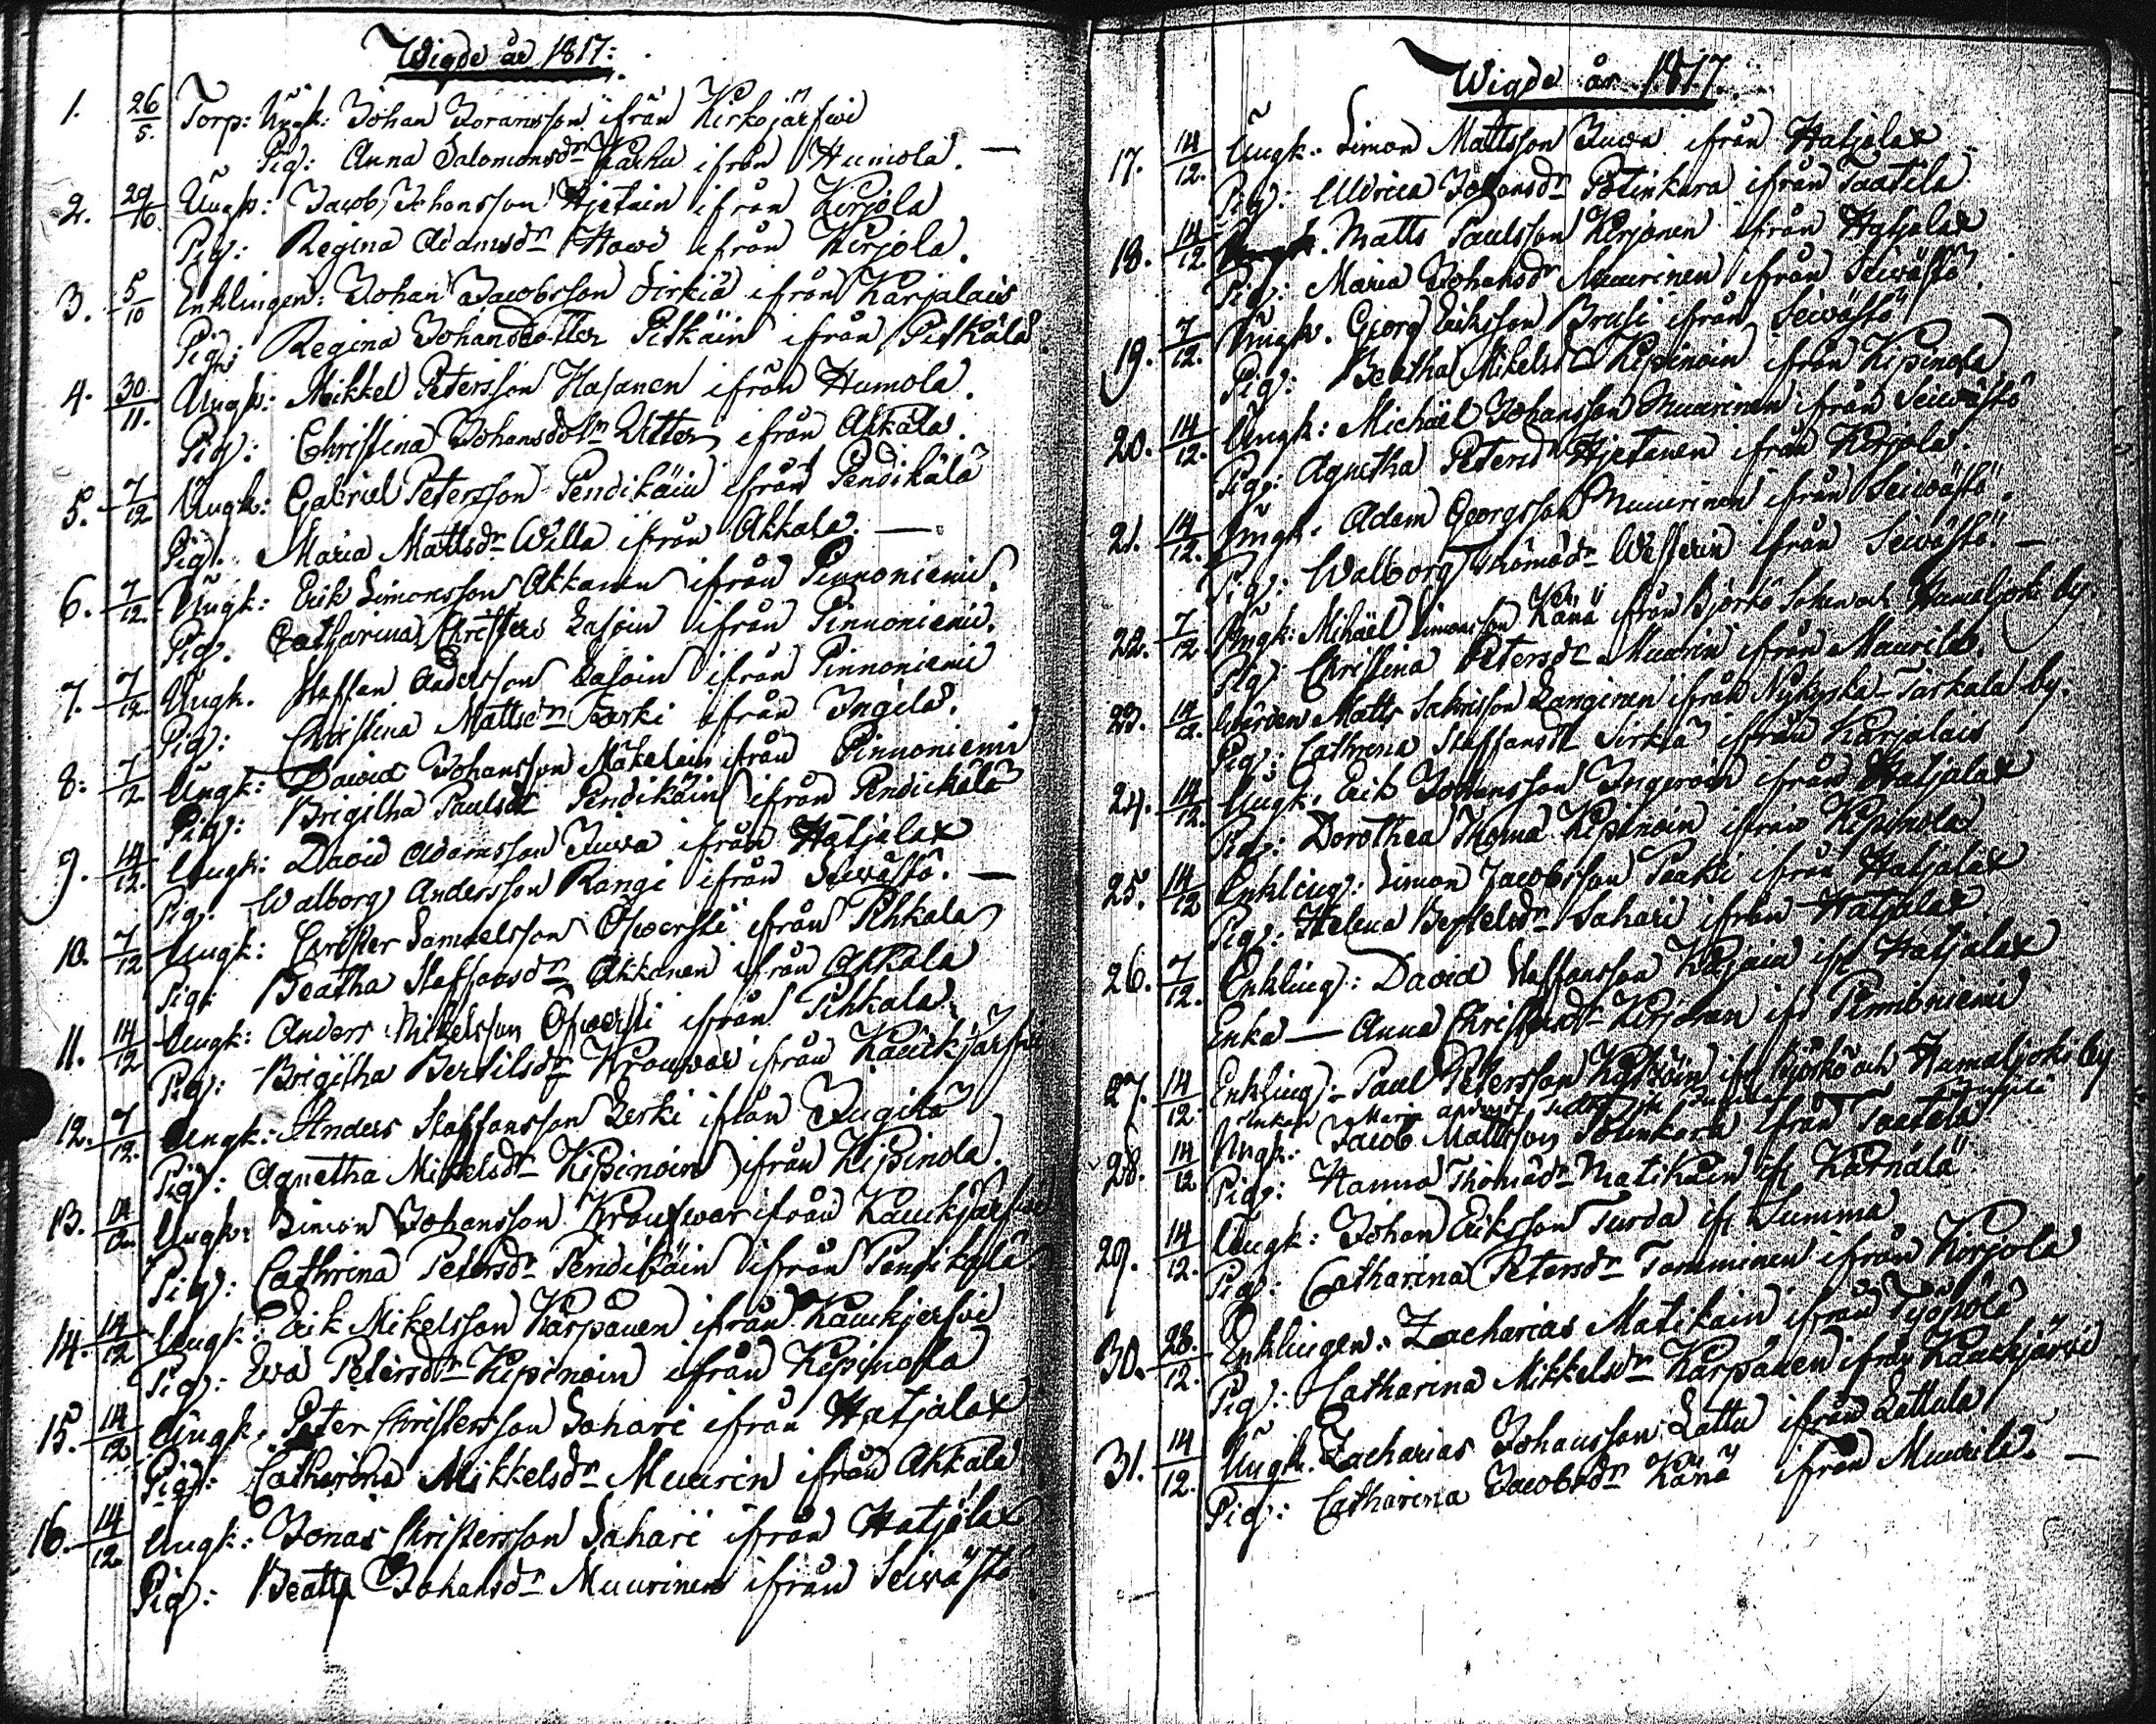 Wigde år 1817:
1. 26/5. Torp: Ungk: Johan Joransson ifrån Kirkojärfwi
Pig: Anna Salomonsdr Karhu ifrån Humola. —
2. 29/10 Ungk: Jacob Johansson Hjetain ifrån Kirjola
Pig: Regina Adamsdr Hawi ifrån Kirjola.
3. 5/10 Enklingen: Johan Jacobsson Sirkiä ifrån Karjalais
Pig: Regina Johansdotter Pitkäin ifrån Pitkälä
4. 30/11. Ungk: Mikkel Petersson Hasanen ifrån Humola.
Pig: Christina Johansdotr Utter ifrån Akkala.
5. 7/12 Ungk: Gabriel Petersson Pendikäin ifrån Pendikälä
Pig: Maria Mattsdr Willa ifrån Akkala. —
6. 7/12. Ungk: Erik Simonsson Akkanen ifrån Pinnoniemi.
Pig. Catharina Christers Lasoin ifrån Pinnoniemi.
7. 7/12. Ungk. Staffan Andersson Lasoin ifrån Pinnoniemi
Pig: Christina Mattsdr Leski ifrån Ingilä.
8: 7/12 Ungk: David Johansson Mäkelain ifrån Pinnoniemi
Pig: Brigitha Paulsdr Pendikäin ifrån Pendickälä
9. 14/12. Ungk: David Adamsson Juwa ifrån Hatjalax
Pig: Walborg Andersson Rangi ifrån Seiwästö. —
10. 7/12 Ungk: Christer Samuelsson Ofwerski ifrån Pihkala
Pig: Beatha Staffansdr Akkanen ifrån Akkala
11. 14/12 Ungk: Anders Mikelsson Ofwerski ifrån Pihkala.
Pig: Brigitha Bertilsdr Kroufwar ifrån Kaukjärfwi
12. 7/12. Ungk: Anders Staffansson Leski ifrån Ingilä
Pig: Agnetha Mikelsdr Kipinoin ifrån Kipinola.
13. 14/12 Ungk: Simon Johansson Kroufwar ifrån Kaukjärfwi
Pig: Cathrina Petersdr Pendikäin ifrån Pendikälä
14. 14/12 Ungk: Erik Mikelsson Karpanen ifrån Kaukjerfwi
Pig: Ewa Petersdr Kipinoin ifrån Kipinola
15. 14/12 Ungk. Peter Christersson Sahari ifrån Hatjalax
Pig: Catharina Mikkelsdr Muurin ifrån Akkala
16. 14/12 Ungk: Jonas Christersson Sahari ifrån Hatjalax
Pig: Beatha Johansdr Muurinen ifrån Seiwästö
Wigde år 1817.
17. 14/12. Ungk: Simon Mattsson Juwa ifrån Hatjalax
Pig: Uldrica Johansdr Pötinkara ifrån Taatila
18. 14/12 Matts Paulsson Kirjanen ifrån Hatjalax
Pig: Maria Johansdr Muurinen ifrån Seiwästö
19. 7/12. Ungk. Georg Eriksson Brusi ifrån Seiwästö
Pig: Beatha Mikelsdr Kipinoin ifrån Kipinola
20. 14/12. Ungk: Michäel Johansson Muurinen ifrån Seiwästö
Pig: Agnetha Petersdr Hjetanen ifrån Kirjola
21. 14/12. Ungk. Adam Georgsson Muurinen ifrån Seiwästö.
Pig: Walborg Thomädr Westerin ifrån Seiwästö. —
22. 7/12 Ungk: Mihäel Simonsson Känä ifrån Björkö Soken och Humaljoki by.
Pig Christina Petersdr Muurin ifrån Muurila.
23. 14/12. Matts Langinen ifrån Nykyrka Tarkala by.
Pig: Cathrina Staffansdr Sirkiä ifrån Karjalais
24. 14/12. Ungk. Erik Johansson Ingeroin ifrån Hatjalax
Pig: Dorothea Thoma Kipinoin ifrån Kipinola
25. 14/12 Enkling: Simon Jacobsson Paaki ifrån Hatjalax
Pig: Helena Bertelsdr Sahari ifrån Hatjalax
26. 7/12. Enkling: David Staffansson Karjain ifr Hatjalax
Enka — Anna Christersdr Kirjanen ifr Pinnoniemi
27. 14/12. Enkling: Paul Petersson ifr Björkö och Humaljoki by
Enkan Maria Andersdr
28. 14/12 Ungk: Jacob Mattsson Pötinkara ifrån Taatila
Pig: Hanna Thomädr Matikain ifr Kärnälä
29. 14/12. Ungk: Johan Eriksson Turda ifr Summa
Pig: Catharina Petersdr Tamminen ifrån Kirjola
30. 28./12. Enklingen: Zacharias Matikain ifrån Työpölö
Pig: Catharina Mikkelsdr Karpanen ifrån Kaukjärwi
31. 14/12. Ungk. Zacharias Johansson Lattu ifrån Lattula
Pig: Catharina Jacobsdr Känä ifrån Muurila. —